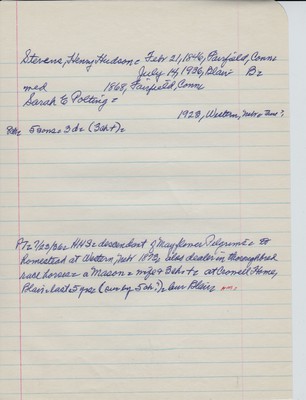 Stevens, Henry Hudson = Feb 21, 1846, Fairfield, Conn
July 14, 1936, Blair B=
med 1868, Fairfield, Conn
Sarah E Polting =
1923, Western, Nebr =
5 sons = 3 d = (3ch+) =
= descendant of Mayflower Pilgrims =
Homestead at Western, Nebr 1873, also dealer in thoroughbred
race horses = a Mason = wife & 3ch+ = at Crowell Home,
Blair = last 5 yrs = (survby 5ch?) = bur Blair =